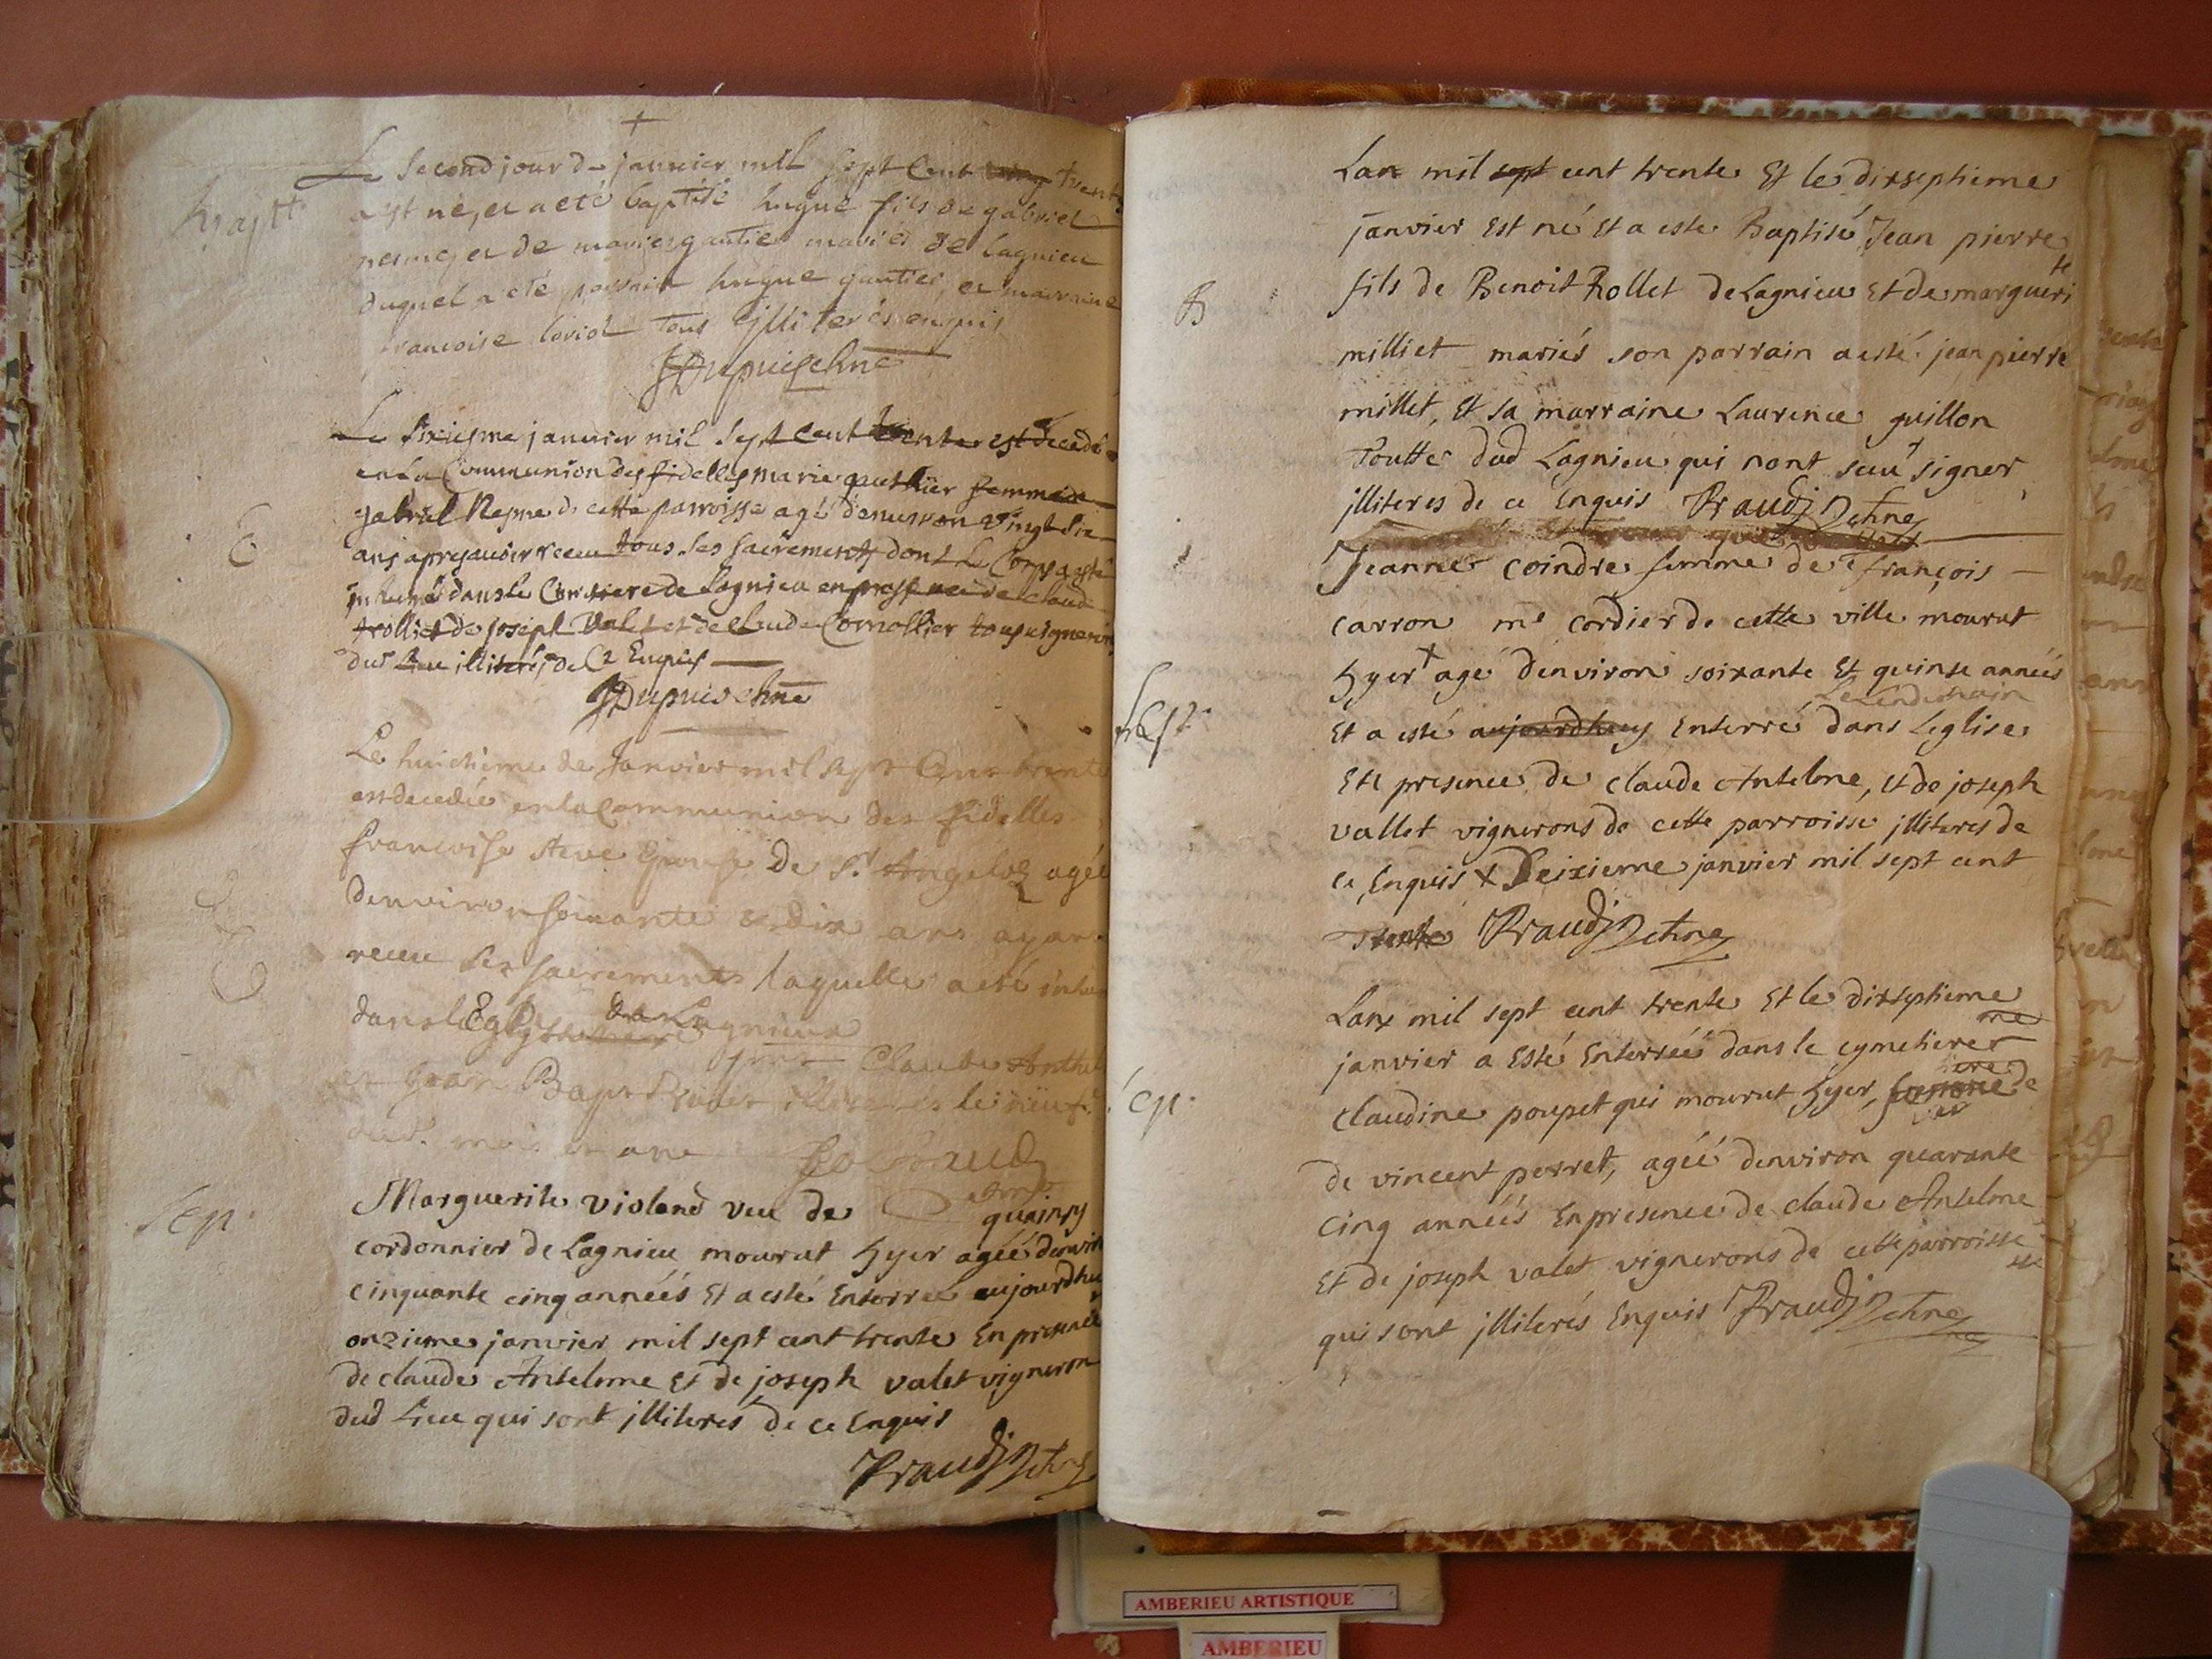 Le second jour de janvier mil sept cent trente
est né, et a eté baptisé hugue fils de gabriel
nesme, et de marie gautier mariés de lagnieu
duquel a eté parrain hugue gautier, et marraine
francoise loriol tous illiterés enquis
Dupuis chne
Le sixiesme janvier mil sept cent trente est decedé
en La Communion des fidelles marie gauthier femme de
gabriel Nesme de cette parroisse agé d'enuiron vingt six
ans apres auoir receu tous ses sacrements dont le Corps a esté
inhumé dans le Cimetiere de Lagnieu en presence de claud
trolliet de joseph Valet et de claude Comollier tous uignerons
dud Lieu illiterés de Ce Enquis
Dupuis chne
Le huictieme de Janvier mil sept Cent trente
est decedée en la Communion des fidelles
francoise Epouse de Sr Angeloz agée
denviron soixante et dix ans ayant
receu les sacrements laquelle a eté inhu
dans lEglise de Lagnieu
Claude Anthel
et Jean Bapt illiteres le neuf
dud. mois et an
Sep.
Marguerite violand veu de quainsy
cordonnier de Lagnieu mourut hyer agéé denvir
cinquante cinq annéés Et a esté Enterreé aujourdhuy
onzieme janvier mil sept cent trente En presence
de claude Antelme Et de joseph valet vigneron
dud Lieu qui sont jlliteres de ce Enquis
Braud chne
Lan mil sept cent trente Et le dixseptieme
janvier Est né Et a este Baptisé Jean pierre
B
fils de Benoit Rollet de Lagnieu Et de margueri
te
milliet mariés son parrain a esté jean pierre
millet, Et sa marraine Laurence guillon
Toutte dud Lagnieu qui nont sceu signer
jlliteres de ce Enquis Braud chne
Jeanne coindre femme de françois
carron me cordier de cette ville mourut
hyer + agé denviron soixante Et quinse annéés
Le Lendemain
Sep.
Et a esté aujourdhuy Enterré dans Leglise
En presence de claude Antelme, Et de joseph
vallet vignerons de cette parroisse jlliteres de
ce Enquis + Seixieme janvier mil sept cent
trente Braud chne
Lan mil sept cent trente Et le dixseptieme
janvier a Esté Enterréé dans le cymetiere
Sep.
claudine poupet qui mourut hyer, femme
de vincent perret, agéé denviron quarante
cinq annéés En presence de claude Antelme
Et de joseph valet vignerons de cette parroisse
qui sont jlliterés Enquis Braud chne
AMBERIEU ARTISTIQUE
AMBERIEU